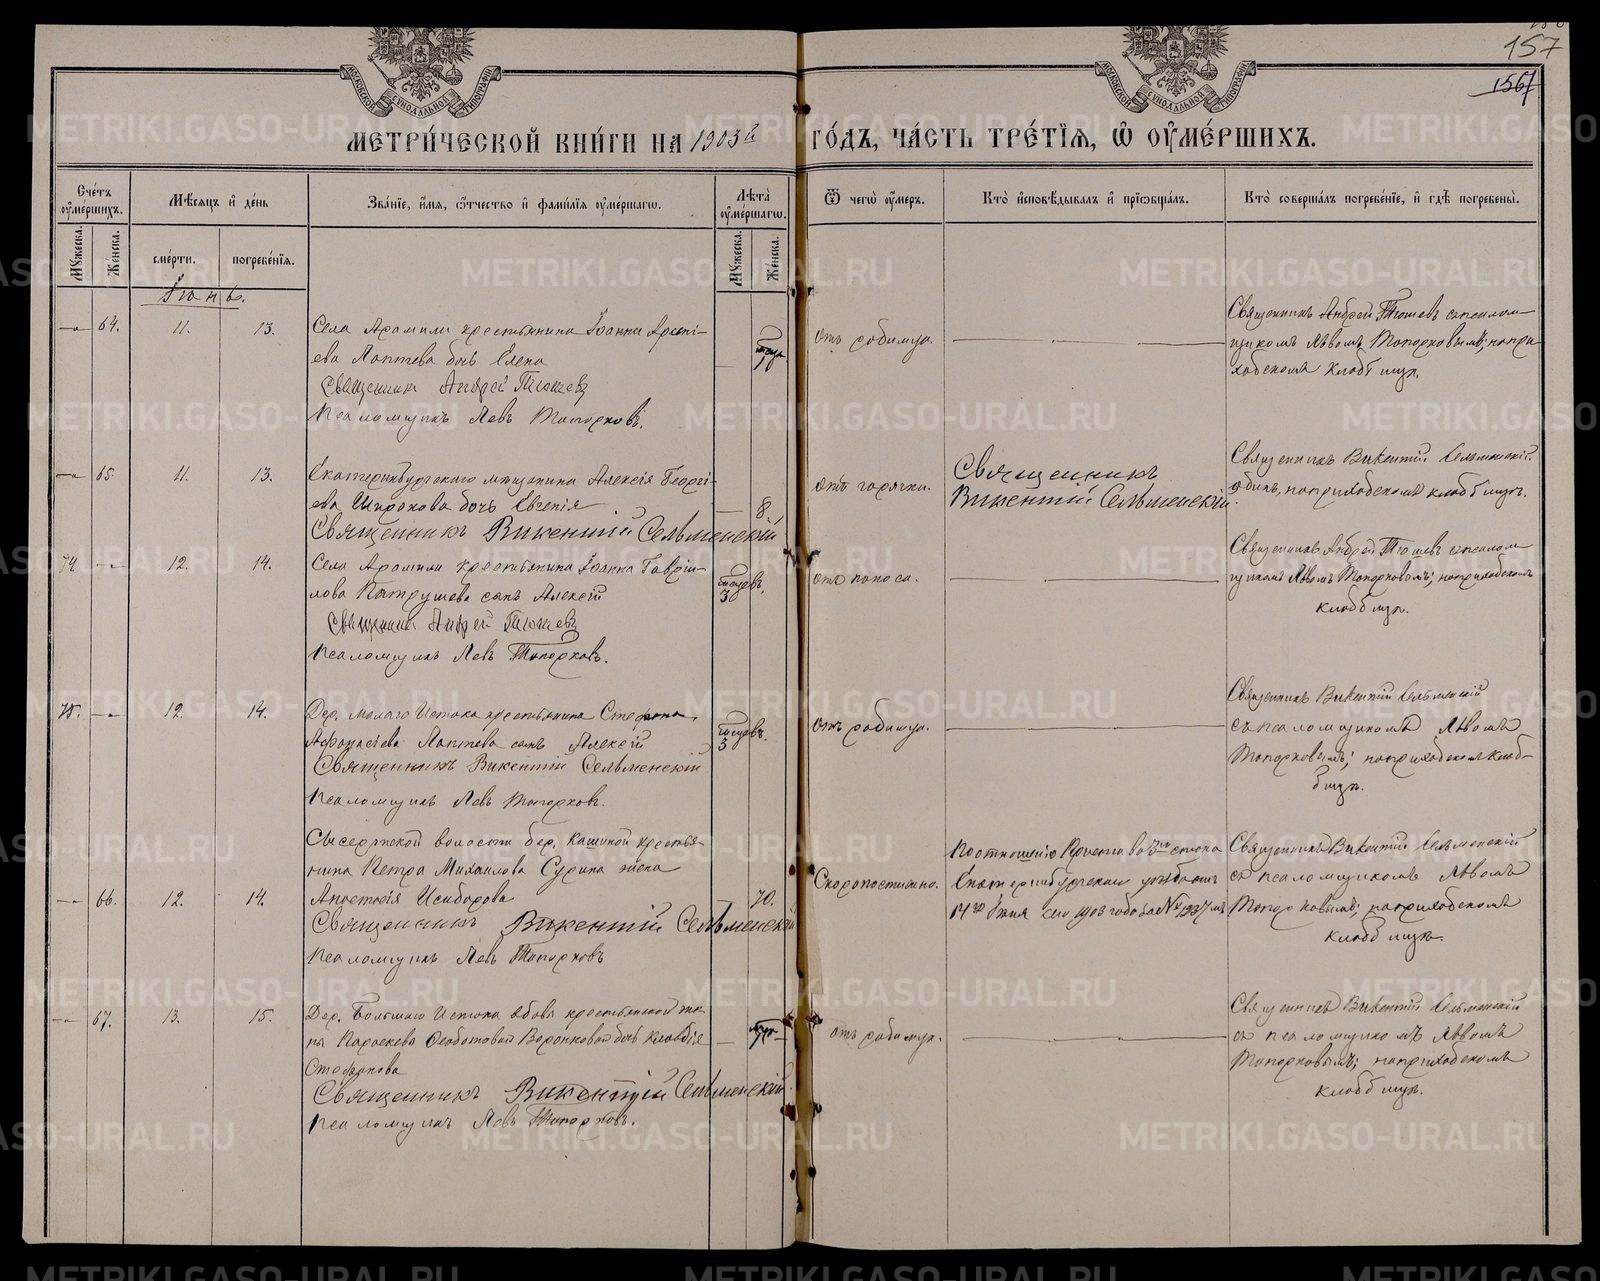 157
1567
МОСКОВСКОЙ СѴНОДАЛЬНОЙ ТИПОГРАФІИ
МОСКОВСКОЙ СѴНОДАЛЬНОЙ ТИПОГРАФІИ
МЕТРИ́ЧЕСКОЙ КНИ́ГИ НА 1903й ГО́ДЪ, ЧА́СТЬ ТРЕ́ТЇѦ, Ѡ҆ ОУ҆МЕ́РШИХЪ.
Сче́тъ оу҆ме́ршихъ.
Мѣ́сѧцъ и҆ де́нь
Зва́нїе, и҆́мѧ, ѻ҆́тчество и҆ фами́лїѧ оу҆ме́ршагѡ.
Лѣ́та̀ оу҆ме́ршагѡ.
Ѿ чегѡ̀ оу҆́меръ.
Кто̀ и҆сповѣ́дывалъ и҆ прїѡбща́лъ.
Кто̀ соверша́лъ погребе́нїе, и҆ гдѣ̀ погребены̀.
Мꙋ́жеска.
Же́нска.
сме́рти.
погребе́нїѧ.
Мꙋ́жеска.
Же́нска.
Іюнь.
64.
11.
13.
Села Арамили крестьянина Іоанна Арсені-
ева Лаптева дочь Елена
Священникъ Андрей Тюшевъ
Псаломщикъ Левъ Топорковъ.
1
отъ родимца.
Священникъ Андрей Тюшевъ съ псалом-
щикомъ Львомъ Топорковымъ; на при-
ходскомъ кладбищѣ.
65.
11.
13.
Екатеринбургскаго мѣщанина Алексія Георгі-
ева Широкова дочь Евгенія
Священникъ Викентій Сельменскій
8.
отъ горячки.
Священникъ
Викентій Сельменскій.
Священникъ Викентій Сельменскій
одинъ, на приходскомъ кладбищѣ.
74
12.
14.
Села Арамили крестьянина Іоанна Гаврі-
лова Патрушева сынъ Алексій
Священникъ Андрей Тюшевъ
Псаломщикъ Левъ Топорковъ.
мѣсяцевъ.
3
отъ поноса.
Священникъ Андрей Тюшевъ съ псалом-
щикомъ Львомъ Топорковымъ; на приходскомъ
кладбищѣ.
75.
12.
14.
Дер. Малаго Истока крестьянина Стефана
Афанасіева Лаптева сынъ Алексій
Священникъ Викентій Сельменскій
Псаломщикъ Левъ Топорковъ.
мѣсяцевъ.
3
отъ родимца.
Священникъ Викентій Сельменскій
съ псаломщикомъ Львомъ
Топорковымъ; на приходскомъ клад-
бищѣ.
66.
12.
14.
Сысертской волости дер. Кашиной крестья-
нина Петра Михаилова Сурина жена
Анастасія Исидорова
Священникъ Викентій Сельменскій
Псаломщикъ Левъ Топорковъ
70.
Скоропостижно.
По отношенію
Екатеринбургскаго уѣзда отъ
14го Іюня сего 1903 года за №
Священникъ Викентій Сельменскій
съ псаломщикомъ Львомъ
Топорковымъ; на приходскомъ
кладбищѣ.
67.
13.
15.
Дер. Большаго Истока вдовы крестьянской же-
ны Параскевы Ѳедотовой Воронковой дочь Клавдія
Стефанова
Священникъ Викентій Сельменскій.
Псаломщикъ Левъ Топорковъ.
отъ родимца.
Священникъ Викентій Сельменскій
съ псаломщикомъ Львомъ
Топорковымъ; на приходскомъ
кладбищѣ.
METRIKI.GASO-URAL.RU